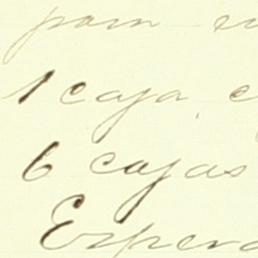 para
1 caja
6 cajas
Espera